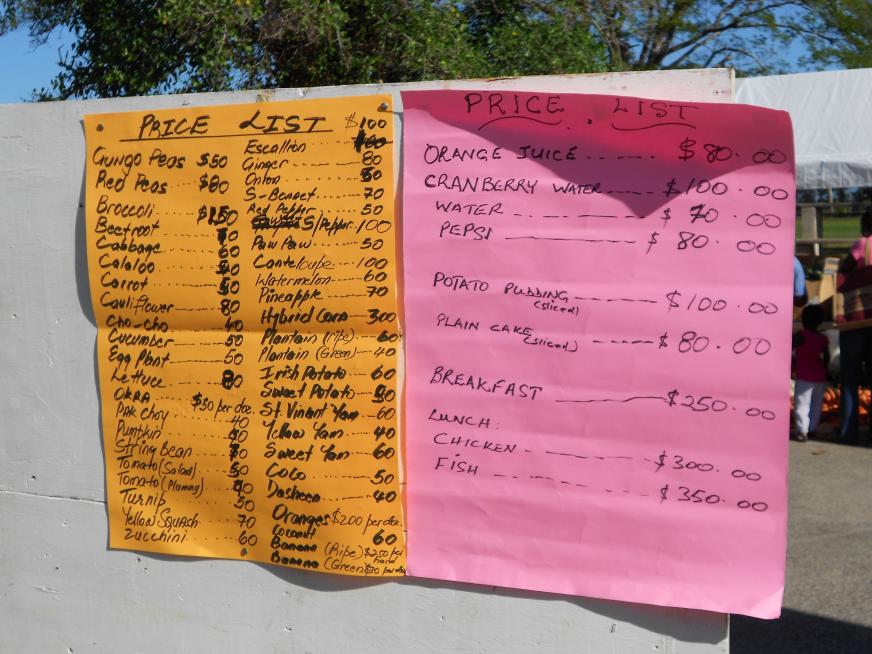 PRICE LIST
Gungo Peas $50
Red Peas $80
Broccoli $150
Beetroot
Cabbage 60
Calaloo
Carrot 50
Cauliflower 80
Cho-cho 40
Cucumber 50
Egg Plant 50
Lettuce 80
OKRA $50 per doz.
PAK Choy 40
Pumpkin
String Bean
Tomato (Salad) 50
Tomato (Plummy)
Turnip 50
Yellow Squash 70
Zucchini 60
$100
Escallion
Ginger 80
Onion
S-Bonnet 70
Red Pepper 50
S/Pepper 100
Paw Paw 50
Canteloupe 100
Watermelon 60
Pineapple 70
Hybrid Corn 300
Plantain (ripe) 60
Plantain (Green) 40
Irish Potato 60
Sweet Potato 50
St. Vincent Yam 60
Yellow Yam 40
Sweet Yam 60
Coco 50
Dasheen 40
Oranges $200 per doz.
Coconut 60
Banana (Ripe) $250 per hand
Banana (Green) per doz
PRICE LIST
ORANGE JUICE $80.00
CRANBERRY WATER $100.00
WATER $70.00
PEPSI $80.00
POTATO PUDDING $100.00
(sliced)
PLAIN CAKE $80.00
(sliced)
BREAKFAST $250.00
LUNCH:
CHICKEN $300.00
FISH $350.00